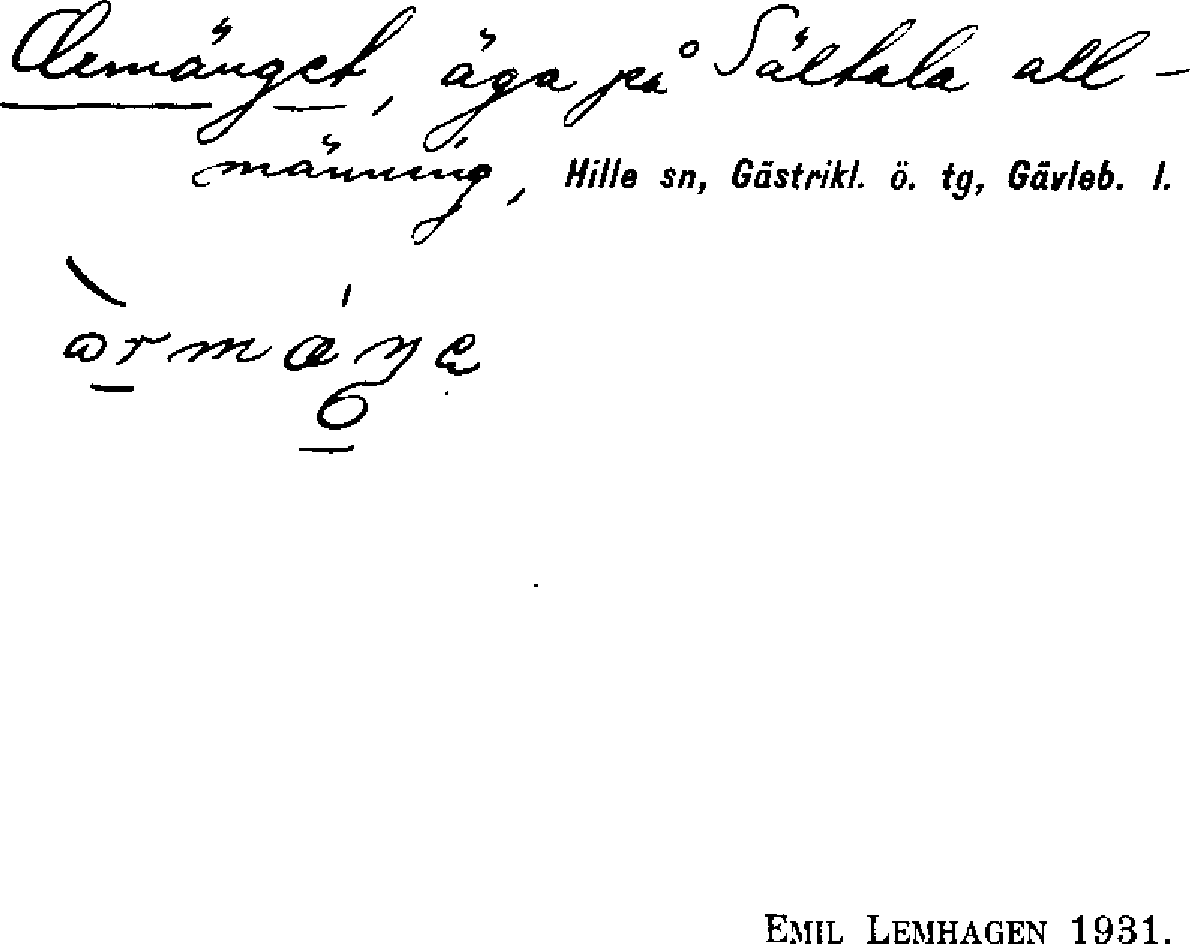 Ormänget, äga på Sältala all-
männing, Hille sn, Gästrikl. ö. tg, Gävleb. l.
EMIL LEMHAGEN 1931.